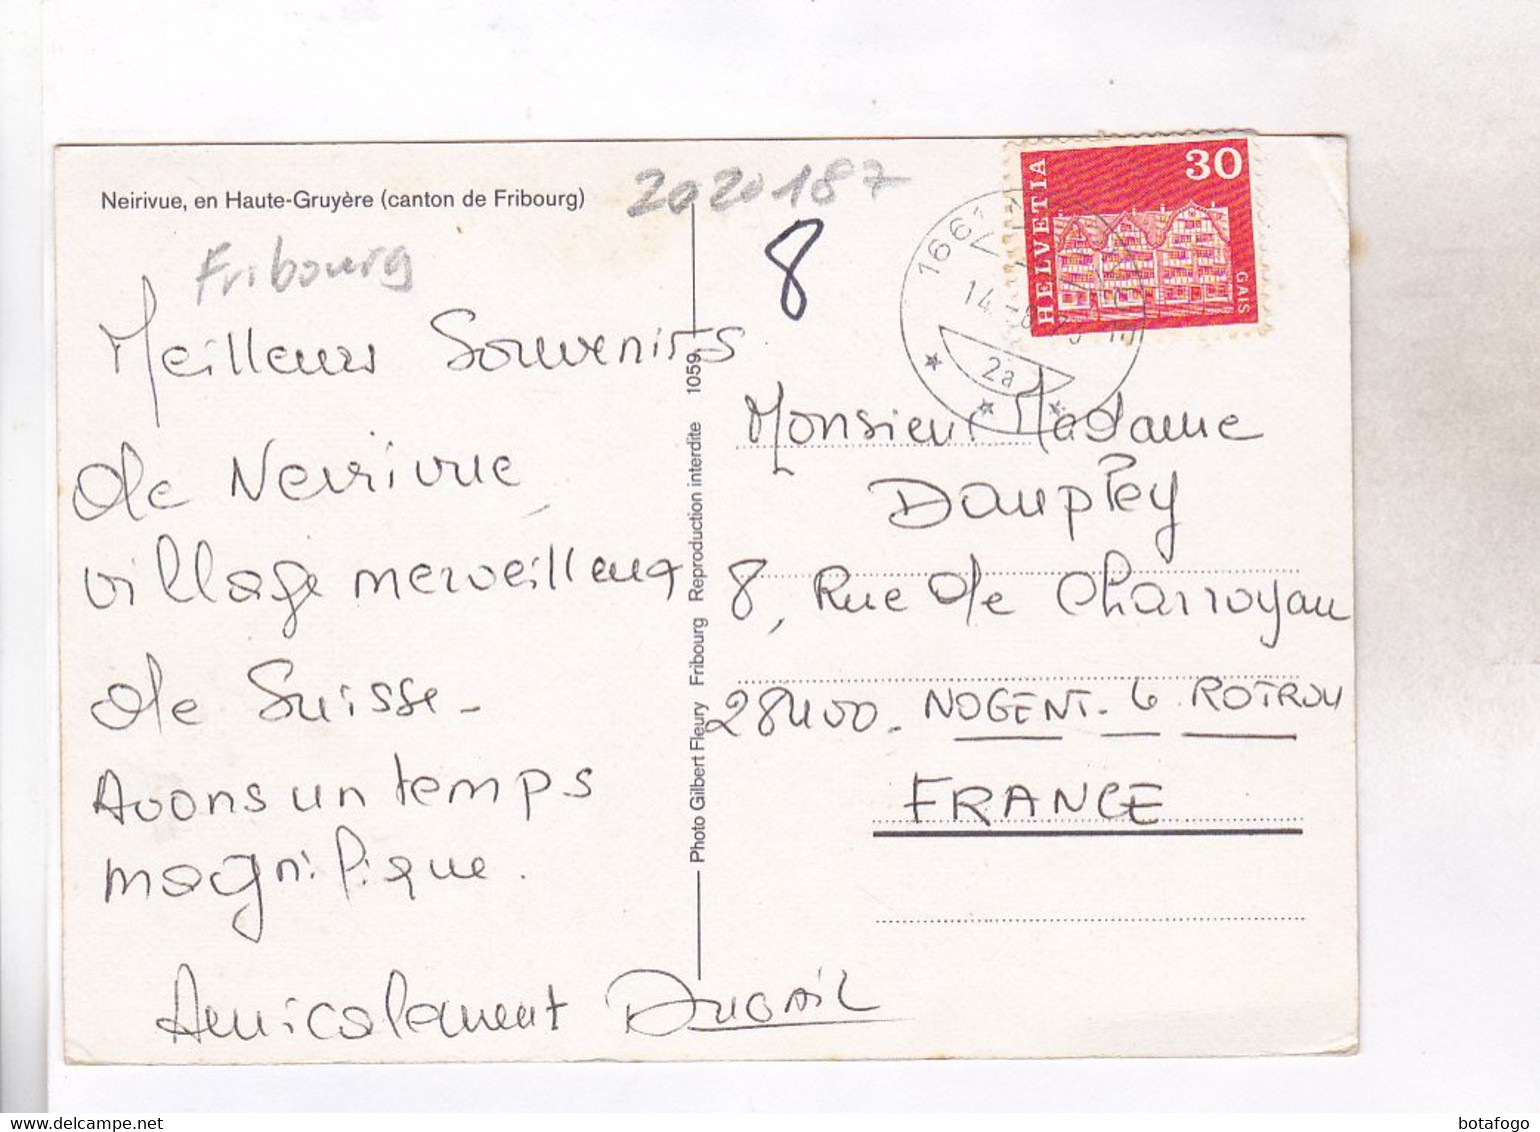 Neirivue, en Haute-Gruyère (canton de Fribourg)
2020187
Fribourg
8
30
HELVETIA
GAIS
1661
14. -8.
2a
Meilleurs Souvenirs
de Neirivue
village merveilleux
de Suisse -
Avons un temps
magnifique.
Amicalement
Photo Gilbert Fleury Fribourg Reproduction interdite 1059
Monsieur Madame
8, Rue de Charroyau
28400. NOGENT. le ROTROU
FRANCE
botafogo